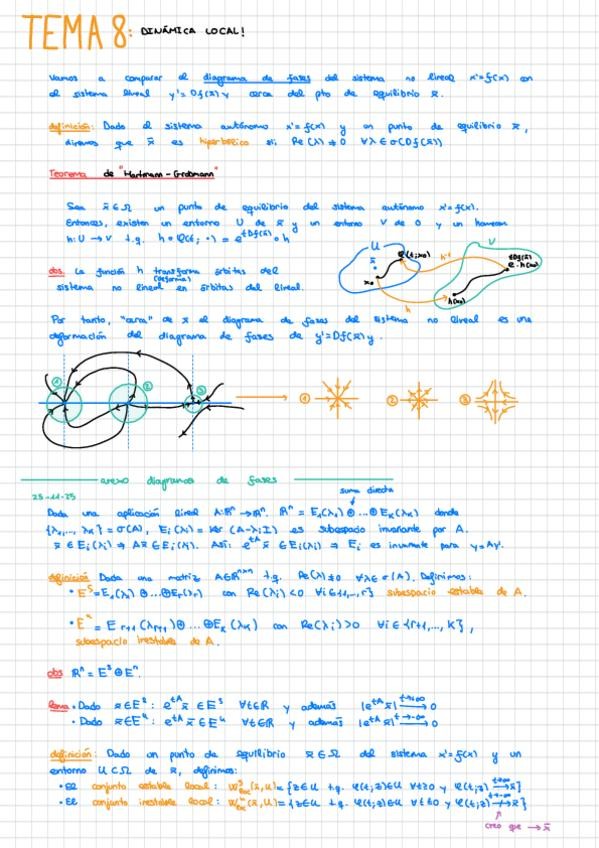 TEMA 8: DINÁMICA LOCAL!
Vamos a comparar el diagrama de fases del sistema no lineal x'=f(x) con
el sistema lineal y'=Df(x̄)y cerca del pto de equilibrio x̄.
definición: Dado el sistema autónomo x'=f(x) y un punto de equilibrio x̄,
diremos que x̄ es hiperbólico si: Re(λ)≠0 ∀λ∈σ(Df(x̄))
Teorema de "Hartmann-Grobmann"
Sea x̄∈Ω un punto de equilibrio del sistema autónomo x'=f(x).
Entonces, existen un entorno U de x̄ y un entorno V de 0 y un homeom.
h:U→V t.q. h∘φ(t;·) = e^{tDf(x̄)}∘h
obs. La función h transforma órbitas del
(deforma)
sistema no lineal en órbitas del lineal.
U x̄ φ(t;x₀) x₀ h⁻¹ h V e^{tDf(x̄)}·h(x₀) h(x₀)
Por tanto, "cerca" de x̄ el diagrama de fases del sistema no lineal es una
deformación del diagrama de fases de y'=Df(x̄)y.
① ② ③ → ① ② ③
anexo diagramas de fases
25-11-25
suma directa
Dada una aplicación lineal A:ℝⁿ→ℝⁿ. ℝⁿ = E₁(λ₁)⊕...⊕E_K(λ_K) donde
{λ₁,..., λ_K} = σ(A), E_i(λ_i) = Ker (A-λ_iI) es subespacio invariante por A.
x̄∈E_i(λ_i) ⇒ Ax̄∈E_i(λ_i). Así: e^{tA} x̄ ∈E_i(λ_i) ⇒ E_i es invariante para y'=Ay.
definición Dada una matriz A∈ℝ^{n×n} t.q. Re(λ)≠0 ∀λ∈σ(A). Definimos:
• E^s=E₁(λ₁)⊕...⊕E_r(λ_r) con Re(λ_i)<0 ∀i∈{1,...,r} subespacio estable de A.
• E^u = E_{r+1}(λ_{r+1})⊕...⊕E_K(λ_K) con Re(λ_i)>0 ∀i∈{r+1,..., K},
subespacio inestable de A.
obs ℝⁿ = E^s⊕E^u.
lema • Dado x̄∈E^s: e^{tA} x̄ ∈ E^s ∀t∈ℝ y además |e^{tA}x̄| →^{t→∞} 0
• Dado x̄∈E^u: e^{tA} x̄ ∈ E^u ∀t∈ℝ y además |e^{tA}x̄| →^{t→-∞} 0
definición: Dado un punto de equilibrio x̄∈Ω del sistema x'=f(x) y un
entorno U⊂Ω de x̄, definimos:
• El conjunto estable local: W^s_{loc}(x̄,U)={z∈U t.q. φ(t;z)∈U ∀t≥0 y φ(t;z) →^{t→∞} x̄}
• El conjunto inestable local: W^u_{loc}(x̄,U)={z∈U t.q. φ(t;z)∈U ∀t≤0 y φ(t;z) →^{t→-∞} x̄}
creo que → x̄